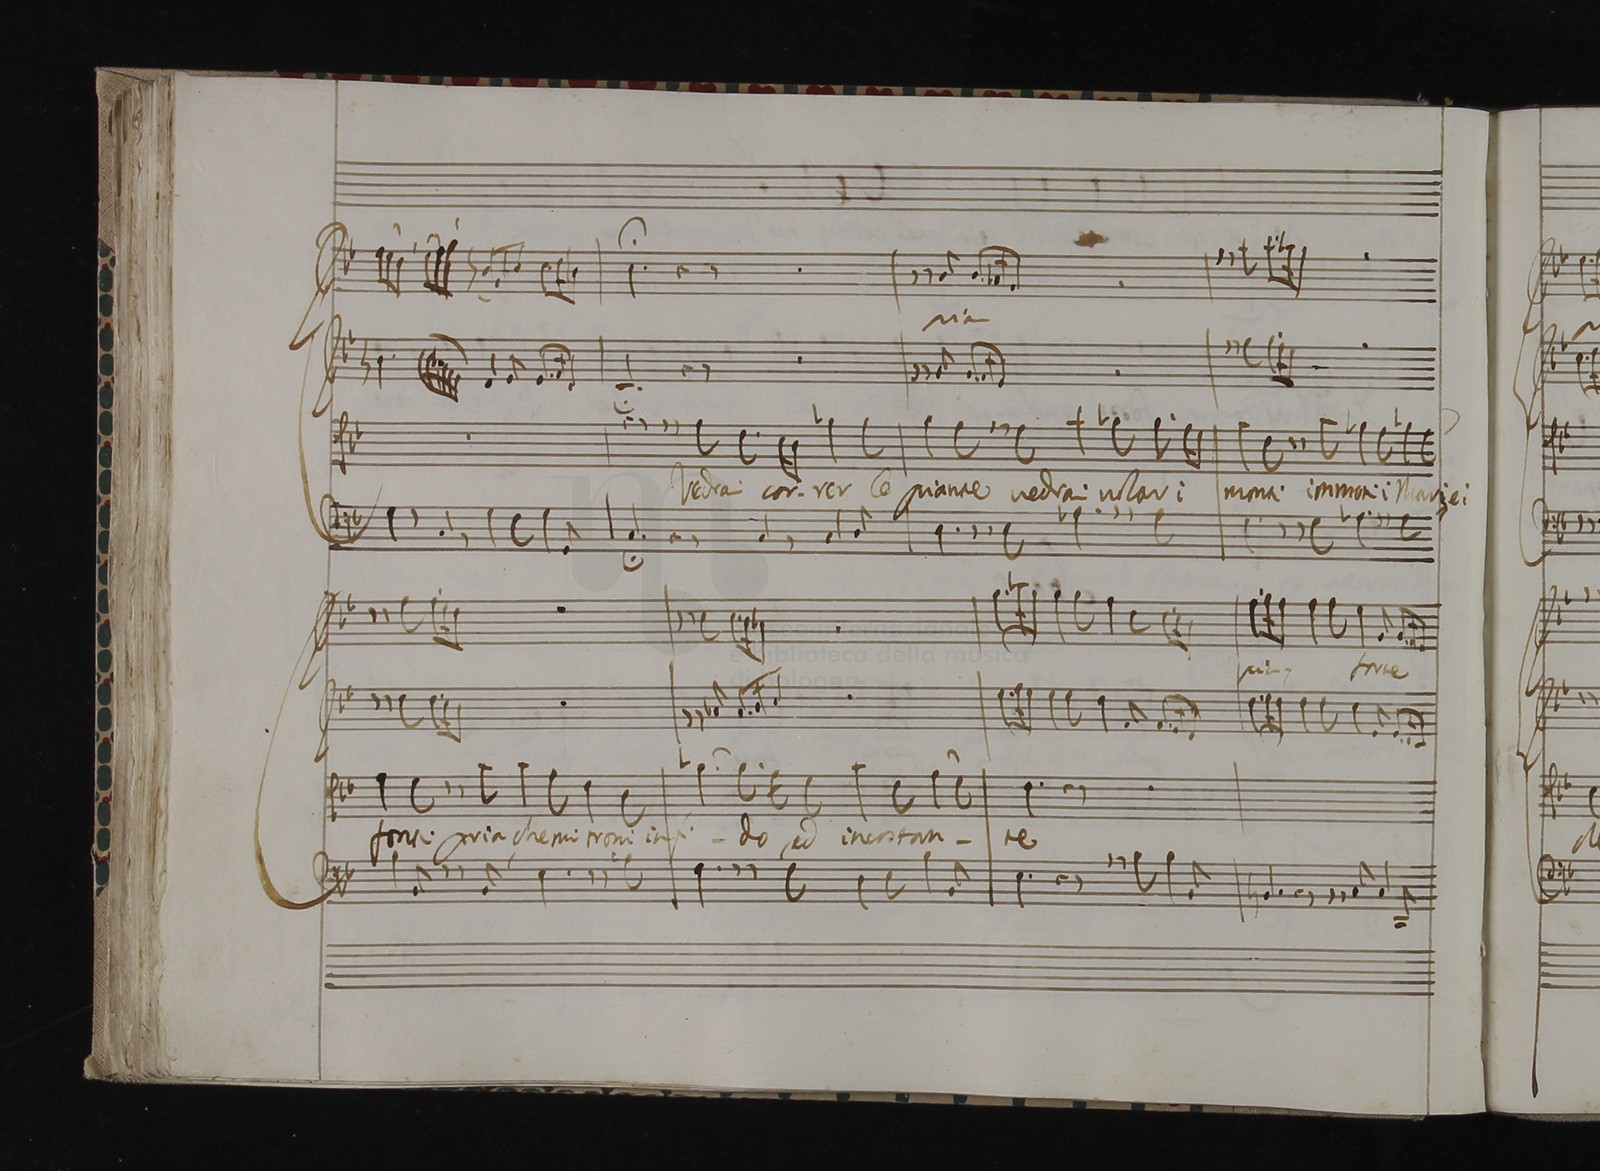 pia
Vedrai cor-rer le piante vedrai volar i monti immoti
pia forte
fonti pria che mi trovi infi - do ed incostan - te
museo internazionale
e biblioteca della musica
di bologna